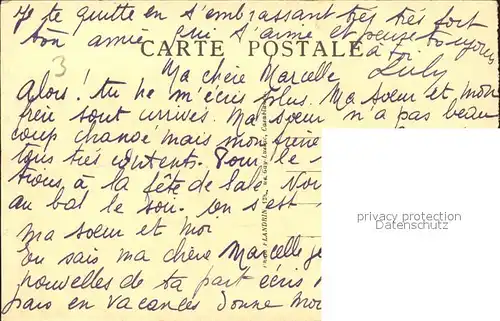 Je te quitte en t'embrassant très très fort
ton amie qui t'aime et pense toujours
à toi.
CARTE POSTALE
3
Ma chère Marcelle Luly
Alors! tu ne m'écris plus. Ma soeur et mon
frère sont arrivés. Ma soeur n'a pas beau
coup changé mais mon frère
tous très contents. Pour le
tions, à la fête de Nou
au bal le soir. On s'est
ma soeur et moi
Tu sais ma chère Marcelle je
nouvelles de ta part écris
pars en vacances donne moi
privacy protection
PhotoPhilatelie
LANDRIN